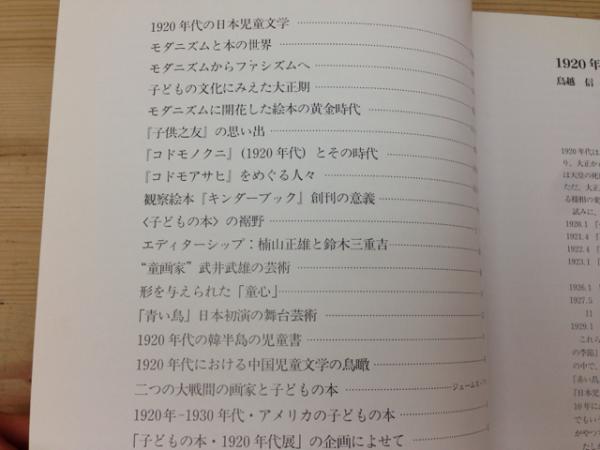 1920年代の日本児童文学
モダニズムと本の世界
モダニズムからファシズムへ
子どもの文化にみえた大正期
モダニズムに開花した絵本の黄金時代
『子供之友』の思い出
『コドモノクニ』(1920年代)とその時代
『コドモアサヒ』をめぐる人々
観察絵本『キンダーブック』創刊の意義
〈子どもの本〉の裾野
エディターシップ:楠山正雄と鈴木三重吉
“童画家”武井武雄の芸術
形を与えられた「童心」
「青い鳥」日本初演の舞台芸術
1920年代の韓半島の児童書
1920年代における中国児童文学の鳥瞰
二つの大戦間の画家と子どもの本
ジェームス・
1920年-1930年代・アメリカの子どもの本
「子どもの本・1920年代展」の企画によせて
1920年
鳥越 信
1920年代は
り、大正から
は天皇の死
ただ、大正
る様相の変
試みに、
1920.1
1921.4
1922.4
1923.1
1926.1
1927.5
11
1929.1
これら
の季節」
の中で、
『赤い鳥』
『日本児
10年に
でもいう
がやつ
たし